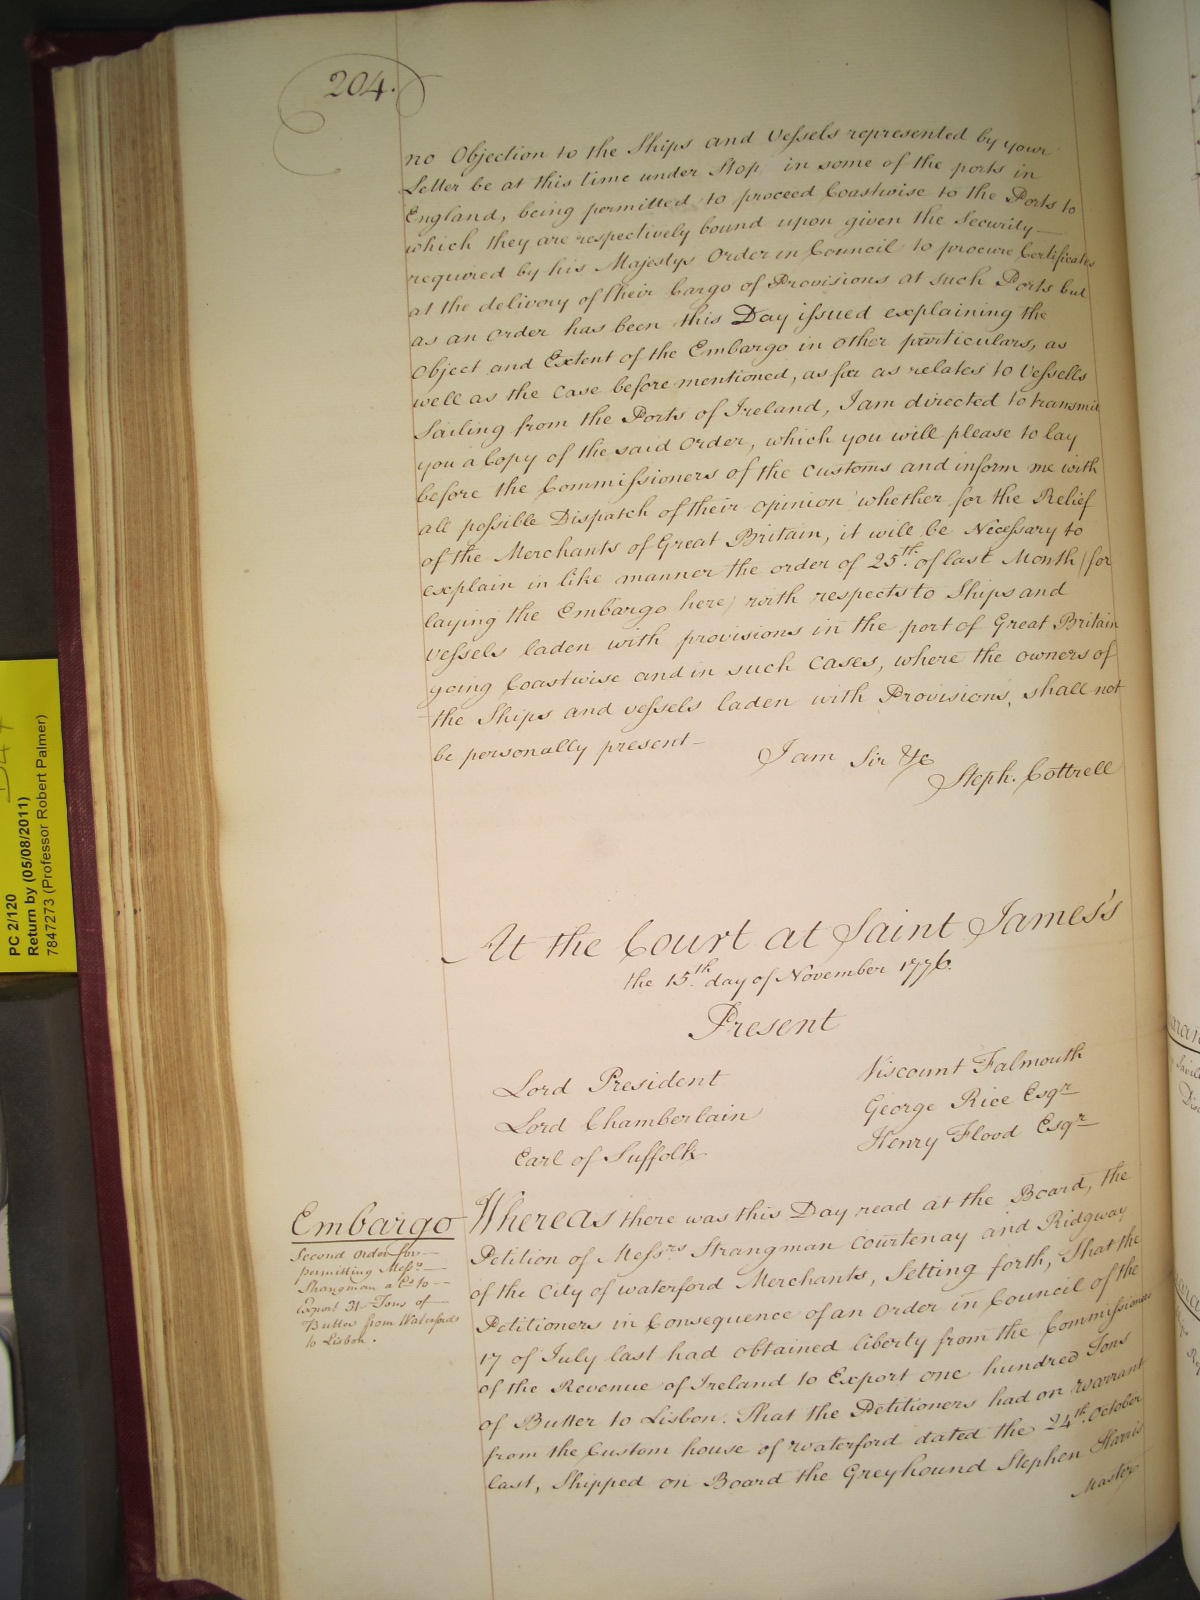 204.
no Objection to the Ships and Vessels represented by your
Letter be at this time under Stop in some of the ports in
England, being permitted to proceed Coastwise to the Ports to
which they are respectively bound upon given the Security
required by his Majestys Order in Council to procure Certificates
at the delivery of their Cargo of Provisions at such Ports but
as an Order has been this Day issued explaining the
Object and Extent of the Embargo in other particulars, as
well as the Case before mentioned, as far as relates to Vessells
Sailing from the Ports of Ireland, I am directed to transmit
you a Copy of the said Order, which you will please to lay
before the Commissioners of the Customs and inform me with
all possible Dispatch of their opinion whether for the Relief
of the Merchants of Great Britain, it will be Necessary to
explain in like manner the order of 25th. of last Month (for
laying the Embargo here) with respects to Ships and
Vessels laden with provisions in the port of Great Britain
going Coastwise and in such Cases, where the owners of
the Ships and vessels laden with Provisions, shall not
be personally present—
I am Sir &c
Steph. Cottrell
At the Court at Saint James's
the 15th. day of November 1776.
Present
Lord President
Lord Chamberlain
Earl of Suffolk
Viscount Falmouth
George Rice Esqr
Henry Flood Esqr
Embargo
Second Order for
permitting Messrs
Strangman &c to
Export 31 Tons of
Butter from Waterford
to Lisbon.
Whereas there was this Day read at the Board, the
Petition of Messrs Strangman Courtenay and Ridgway
of the City of Waterford Merchants, Setting forth, That the
Petitioners in Consequence of an Order in Council of the
17 of July last had obtained liberty from the Commissioners
of the Revenue of Ireland to Export one hundred Tons
of Butter to Lisbon. That the Petitioners had on warrant
from the Custom house of Waterford dated the 24th. October
last, Shipped on Board the Greyhound Stephen Harris
Master
PC 2/120
Return by (05/08/2011)
7847273 (Professor Robert Palmer)